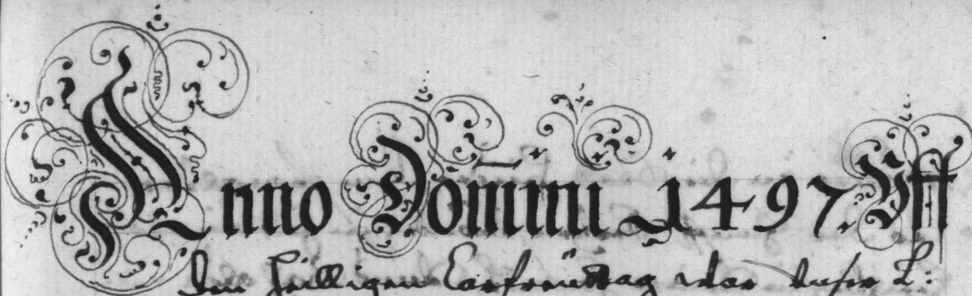 Anno Domini 1497 Uff
den heilligen Carfreÿttag war unser L: